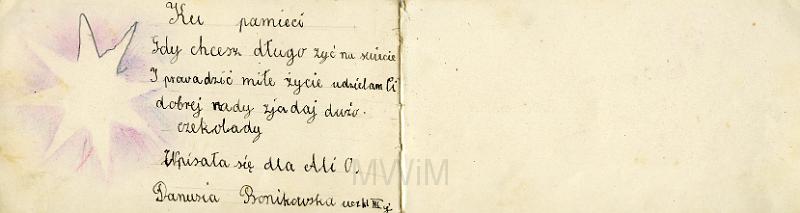 Ku pamięci
Gdy chcesz długo żyć na świecie
I prowadzić miłe życie udzielam Ci
dobrej rady zjadaj dużo.
czekolady
Wpisała się dla Ali O.
Danusia Bonikowska ucz kl III
MWiM